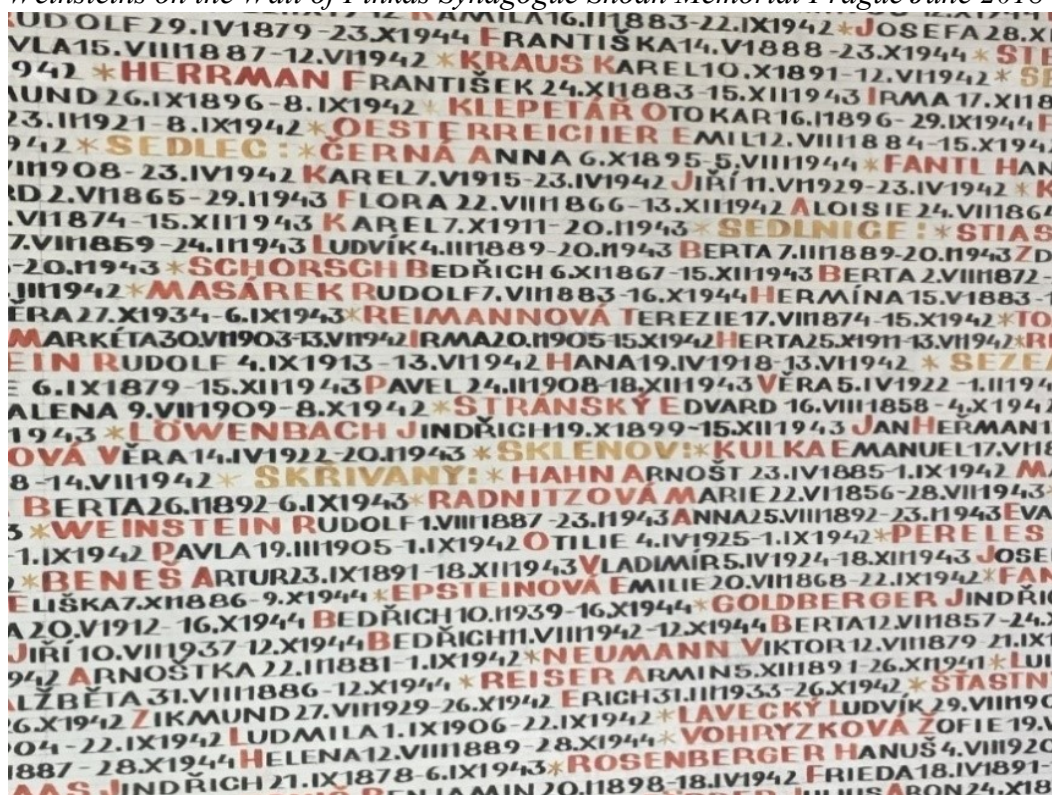 Weinsteins on the Wall of Pinkas Synagogue Shoah Memorial Prague June 2018
UDOLF 29.IV1879-23.X1944 FRANTIŠKA14.V1888-23.X1944 *
VLA15.VIII1887-12.VI1942 *KRAUS KAREL10.X1891-12.VI1942*
942 *HERRMAN FRANTIŠEK 24.XI1883-15.XII1943 IRMA 17.XI18
UND 26.IX1896-8.IX1942 * KLEPETÁŘ OTOKAR16.I1896-29.IX1944
23.II1921-8.IX1942*OESTERREICHER EMIL12.VIII1884-15.X194
942*SEDLEC:*ČERNÁ ANNA 6.X1895-5.VIII1944*FANTL HAN
1908-23.IV1942 KAREL7.V1915-23.IV1942 JIŘÍ 11.VI1929-23.IV1942 *K
RD 2.VI1865-29.I1943 FLORA 22.VIII1866-13.XII1942 ALOISIE 24.VII1864
.VI1874-15.XII1943 KAREL7.X1911-20.I1943*SEDLNICE:*STIAS
7.VII1859-24.II1943 LUDVÍK4.III1889-20.I1943 BERTA 7.III1889-20.I1943 ZD
-20.I1943*SCHORSCH BEDŘICH 6.XI1867-15.XII1943 BERTA 2.VIII1872-
.III1942*MASÁREK RUDOLF7.VII1883-16.X1944 HERMÍNA15.V1883-1
ĚRA27.X1934-6.IX1943*REIMANNOVÁ TEREZIE17.VII1874-15.X1942*TO
MARKÉTA30.VI1903-13.VI1942 IRMA20.I1905-15.X1942 HERTA25.XI1911-13.VI1942*R
EIN RUDOLF 4.IX1913-13.VI1942 HANA19.IV1918-13.VI1942 * SEZE
E 6.IX1879-15.XII1943 PAVEL 24.II1908-18.XII1943 VĚRA5.IV1922-1.II194
ALENA 9.VII1909-8.X1942*STRÁNSKÝ EDVARD 16.VIII1858-4.X194
1943*LÖWENBACH JINDŘICH19.X1899-15.XII1943 JANHEŘMAN1
OVÁ VĚRA14.IV1922-20.I1943 *SKLENOV:*KULKA EMANUEL17.VI18
8-14.VII1942* SKŘIVANY:*HAHN ARNOŠT 23.IV1885-1.IX1942
BERTA26.I1892-6.IX1943*RADNITZOVÁ MARIE22.VI1856-28.VII1943*
3 *WEINSTEIN RUDOLF1.VIII1887-23.I1943 ANNA25.VIII1892-23.I1943 EVA
-1.IX1942 PAVLA 19.III1905-1.IX1942 OTILIE 4.IV1925-1.IX1942*PERELES
*BENEŠ ARTUR23.IX1891-18.XII1943 VLADIMÍR5.IV1924-18.XII1943 JOSE
ELIŠKA7.XI1886-9.X1944*EPSTEINOVÁ EMILIE20.VII1868-22.IX1942*FAN
A 20.V1912-16.X1944 BEDŘICH10.I1939-16.X1944*GOLDBERGER JINDŘIC
JIŘÍ 10.VII1937-12.X1944 BEDŘICH11.VIII1942-12.X1944 BERTA12.VII1857-24.
942 ARNOŠTKA 22.II1881-1.IX1942*NEUMANN VIKTOR12.VII1879-21.IX1
LŽBĚTA 31.VIII1886-12.X1944 *REISER ARMIN5.XII1891-26.XI1941*LUI
6.X1942 ZIKMUND27.VII1929-26.X1942 ERICH31.III1933-26.X1942*ŠŤASTN
04-22.IX1942 LUDMILA1.IX1906-22.IX1942*LAVECKÝ LUDVÍK29.VII19
887-28.X1944 HELENA12.VIII1889-28.X1944*VOHRYZKOVÁ ŽOFIE19.
AAS JINDŘICH21.IX1878-6.IX1943*ROSENBERGER HANUŠ4.VIII192
BENJAMIN20.I1898-18.IV1942 FRIEDA18.IV1891-